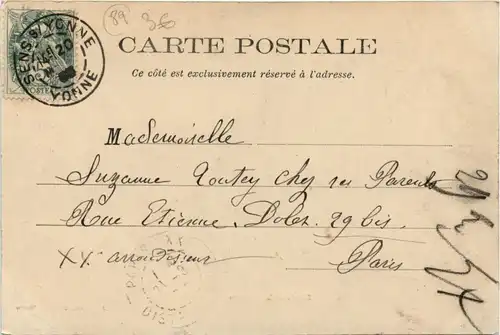 89 36
SENS S/ YONNE
20
YONNE
CARTE POSTALE
Ce côté est exclusivement réservé à l'adresse.
Mademoiselle
Suzanne chez ses Parents
Rue Etienne Dolez 29 bis
XX arrondisseur
Paris